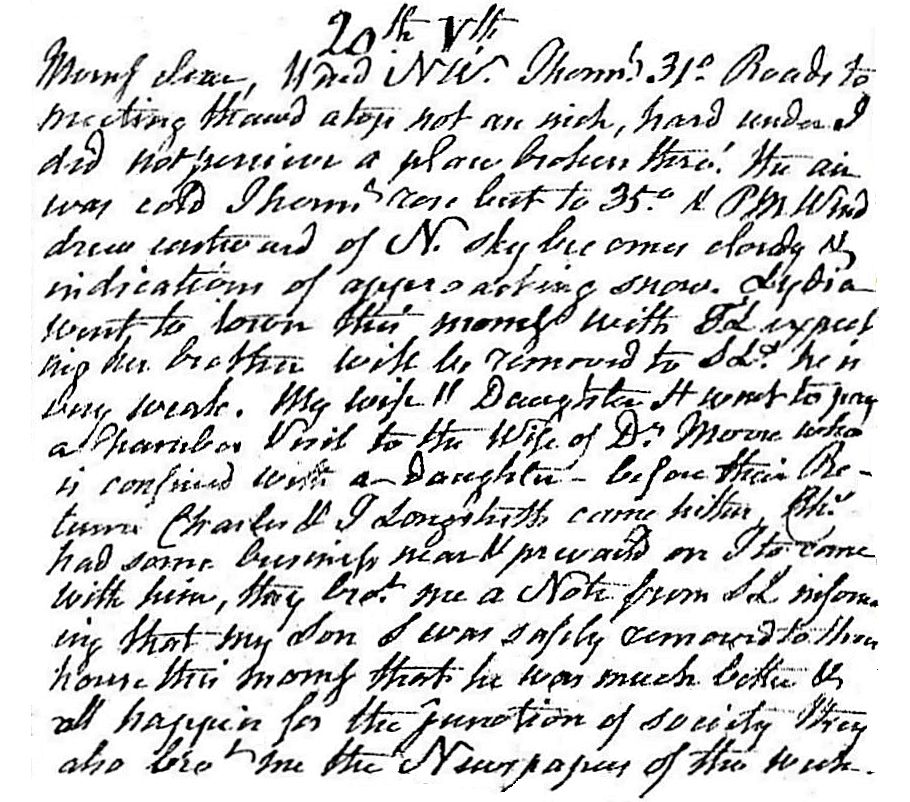 20th Vth
Morng clear, Wind NW. Thermr. 31° Roads to
meeting thawd atop not an inch, hard under. I
did not perceive a plow broken thro'. the air
was cold Thermr rose but to 35.° & PM Wind
drew eastward of N. sky becomes cloudy &
indications of approaching snow. Lydia
went to town this morng with TL expect
ing her brother will be removed to SLs. he is
very weak. My wife & Daughter H went to pay
a Chamber Visit to the Wife of Dr Moore who
is confined with a Daughter - before their Re-
turn Charles & J Longstreth came hither, Chs.
had some business near & prevaild on J to come
with him, they brot. me a Note from SL inform
ing that my Son S was safely removd to their
house this morng that he was much better &
all happier for the junction of society they
also brot me the Newspapers of the week.